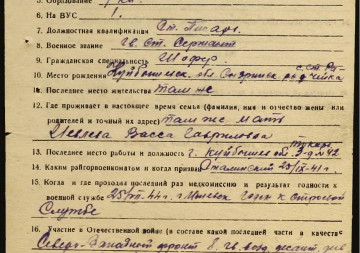 5. Образование 7 кл.
6. На ВУС 1.
7. Должностная квалификация Ст. Писарь
8. Военное звание гв. Ст. Сержант
9. Гражданская специальность Шофер
10. Место рождения Куйбышевск. обл.
11. Последнее место жительства там же
12. Где проживает в настоящее время семья (фамилия, имя и отчество жены или
родителей и точный их адрес) там же мать
Васса Гавриловна
13. Последнее место работы и должность г. Куйбышев обл. 3-д №42
14. Каким райгорвоенкоматом и когда призван Сталинский 25/IX-41 г.
15. Когда и где проходил последний раз медкомиссию и результат годности к
военной службе 25/VII 44 г. годен к строевой
Службе
16. Участие в Отечественной войне (в составе какой последней части и в качестве
Северо-Западный фронт 8 гв. возд. десант. див